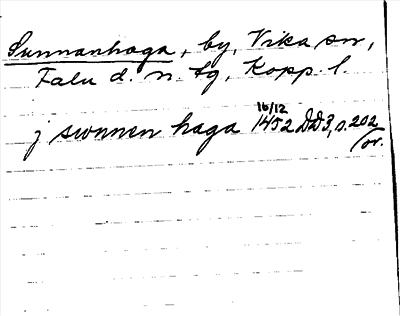 Sunnanhaga, by, Vika sn,
Falu d. n. tg, Kopp. l.
16/12
j swnnen haga 1452 DD3, s. 202
/or.